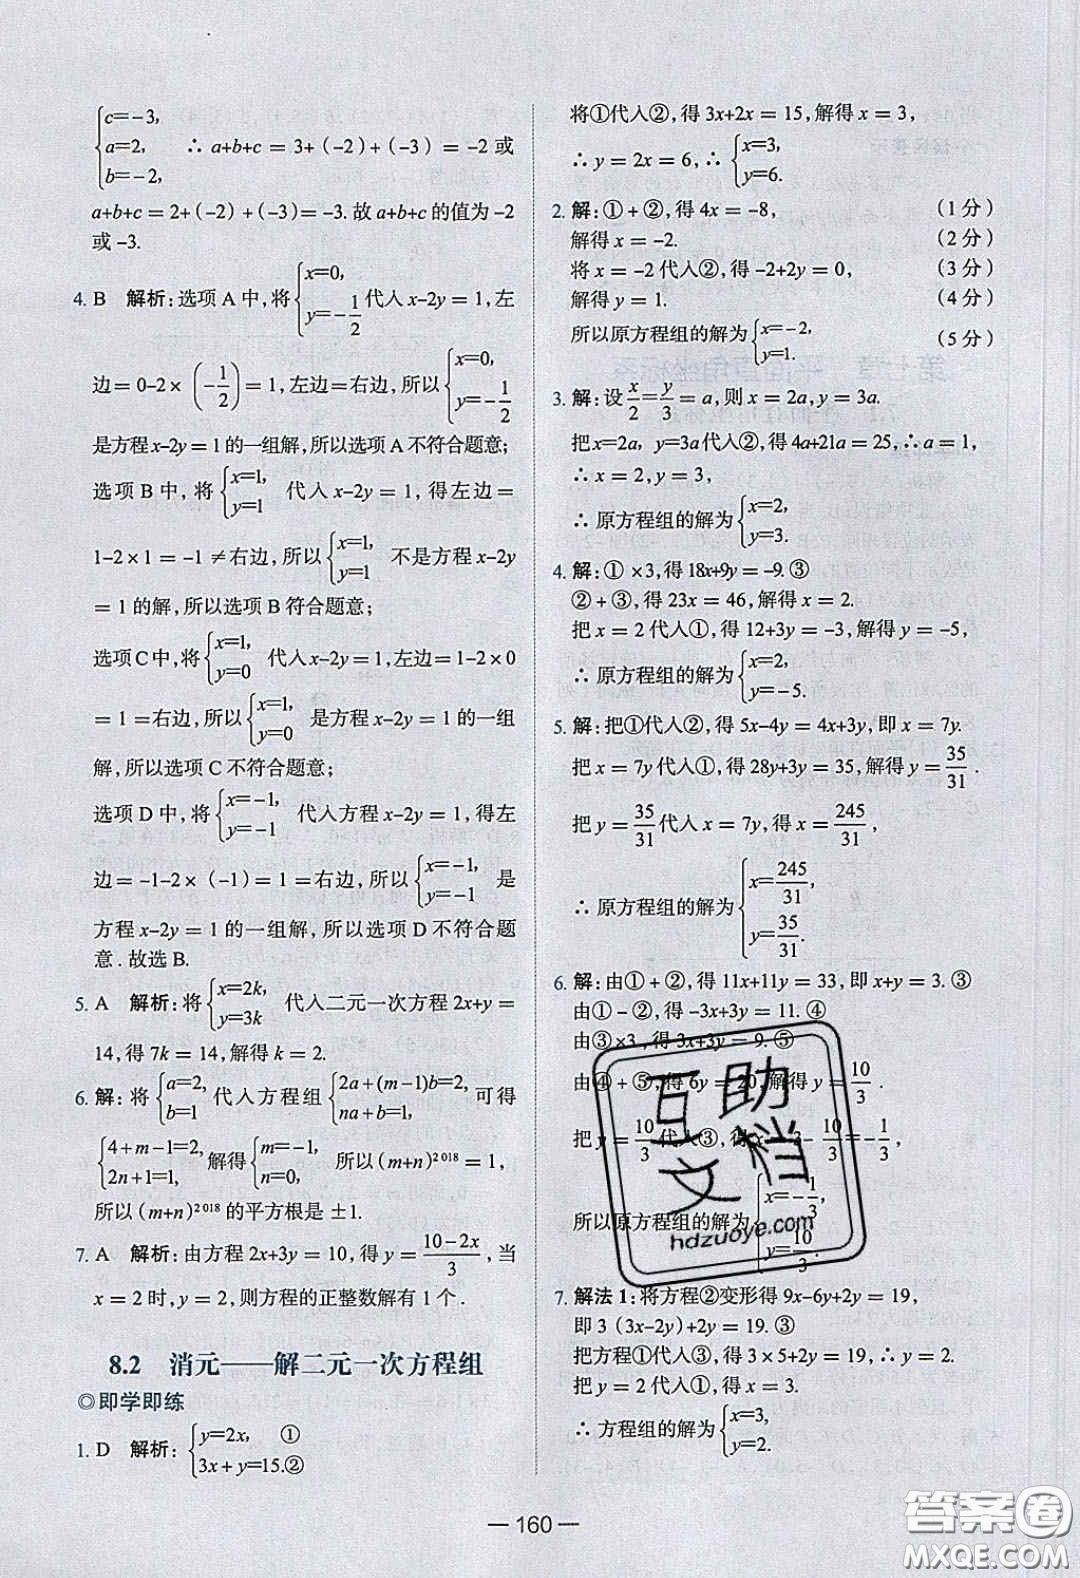 {c=-3,
a=2,  ∴ a+b+c = 3+(-2)+(-3) = -2 或
b=-2,
a+b+c = 2+(-2)+(-3)=-3. 故 a+b+c 的值为 -2
或 -3.
4. B 解析:选项 A 中,将{x=0, y=-1/2 代入 x-2y = 1,左
边 = 0-2×(-1/2) = 1,左边=右边,所以{x=0, y=-1/2
是方程 x-2y = 1 的一组解,所以选项 A 不符合题意;
选项 B 中,将{x=1, y=1 代入 x-2y = 1,得左边 =
1-2×1 = -1 ≠右边,所以{x=1, y=1 不是方程 x-2y
= 1 的解,所以选项 B 符合题意;
选项 C 中,将{x=1, y=0 代入 x-2y = 1,左边= 1-2×0
= 1 =右边,所以{x=1, y=0 是方程 x-2y = 1 的一组
解,所以选项 C 不符合题意;
选项 D 中,将{x=-1, y=-1 代入方程 x-2y = 1,得左
边= -1-2×(-1) = 1 =右边,所以{x=-1, y=-1 是
方程 x-2y = 1 的一组解,所以选项 D 不符合题
意.故选 B.
5. A 解析:将{x=2k, y=3k 代入二元一次方程 2x+y =
14,得 7k = 14,解得 k = 2.
6. 解:将{a=2, b=1 代入方程组{2a+(m-1)b=2, na+b=1, 可得
{4+m-1=2, 2n+1=1, 解得{m=-1, n=0, 所以 (m+n)²⁰¹⁸ = 1,
所以 (m+n)²⁰¹⁸ 的平方根是 ±1.
7. A 解析:由方程 2x+3y = 10,得 y = (10-2x)/3,当
x = 2 时,y = 2,则方程的正整数解有 1 个.
8.2 消元——解二元一次方程组
◎即学即练
1. D 解析:{y=2x, ① 3x+y=15.②
将①代入②,得 3x+2x = 15,解得 x = 3,
∴ y = 2x = 6,∴ {x=3, y=6.
2. 解:①+②,得 4x = -8, (1 分)
解得 x = -2. (2 分)
将 x = -2 代入②,得 -2+2y = 0, (3 分)
解得 y = 1. (4 分)
所以原方程组的解为{x=-2, y=1. (5 分)
3. 解:设 x/2 = y/3 = a,则 x = 2a,y = 3a.
把 x=2a, y=3a 代入②,得 4a+21a = 25,∴ a = 1,
∴ x = 2,y = 3,
∴ 原方程组的解为{x=2, y=3.
4. 解:① ×3,得 18x+9y = -9. ③
②+③,得 23x = 46,解得 x = 2.
把 x = 2 代入①,得 12+3y = -3,解得 y = -5,
∴ 原方程组的解为{x=2, y=-5.
5. 解:把①代入②,得 5x-4y = 4x+3y,即 x = 7y.
把 x = 7y 代入①,得 28y+3y = 35,解得 y = 35/31.
把 y = 35/31 代入 x = 7y,得 x = 245/31,
∴ 原方程组的解为{x=245/31, y=35/31.
6. 解:由①+②,得 11x+11y = 33,即 x+y = 3. ③
由①-②,得 -3x+3y = 11. ④
由③×3,得 3x+3y = 9. ⑤
由④+⑤,得 6y = 20,解得 y = 10/3.
把 y = 10/3 代入③,得 x = 3-10/3=-1/3,
所以原方程组的解为{x=-1/3, y=10/3.
7. 解法 1:将方程②变形得 9x-6y+2y = 19,
即 3 (3x-2y)+2y = 19. ③
把方程①代入③得 3×5+2y = 19,∴ y = 2.
把 y = 2 代入①,得 x = 3.
∴ 方程组的解为{x=3, y=2.
互助
文档
hdzuoye.com
— 160 —
答案圈
MXQE.COM